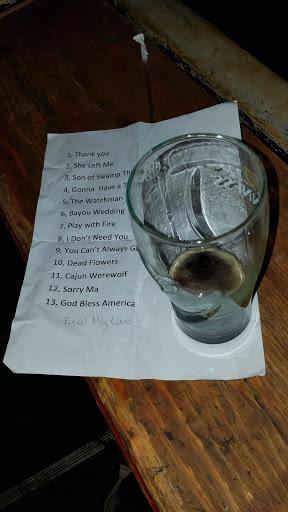 1, Thank you
2, She Left Me
3, Son of Swamp Th
4, Gonna Have a T
5, The Watchman
6, Bayou Wedding
7, Play with Fire
8, I Don't Need You
9, You Can't Always G
10, Dead Flowers
11, Cajun Werewolf
12, Sorry Ma
13, God Bless America
My Love